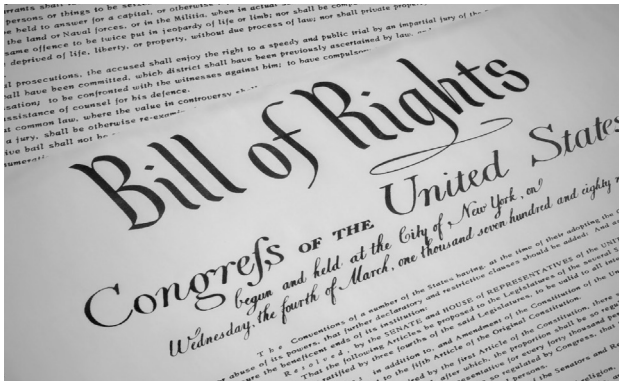 persons or things to be seiz
be held to answer for a capital, or otherwise
the land or Naval forces, or in the Militia, when in actual
same offence to be twice put in jeopardy of life or limb; nor shall be
deprived of life, liberty, or property, without due process of law; nor shall private
prosecutions, the accused shall enjoy the right to a speedy and public trial by an impartial jury of the
have been committed, which district shall have been previously ascertained by law,
sation; to be confronted with the witnesses against him; to have compulsory
ssistance of counsel for his defence.
common law, where the value in controversy
a jury, shall be otherwise re-exam
ive bail shall not
Bill of Rights
Congreſs OF THE United States
begun and held at the City of New York, on
Wednesday, the fourth of March, one thousand seven hundred and eighty
The Conventions of a number of the States having, at the time of their adopting the
abuse of its powers, that further declaratory and restrictive clauses should be added: And
the beneficent ends of its institution:
Resolved, by the SENATE and HOUSE of REPRESENTATIVES of the UNI
That the following Articles be proposed to the Legislatures of the several
ratified by three fourths of the said Legislatures, to be valid to all
in addition to, and Amendment, of the Constitution of the
to the fifth Article of the Original Constitution.
by the first Article of the Constitution, there
after which, the proportion shall be so regu
representative for every forty thousand per
so regulated by Congress, that
the Senators and
religion,